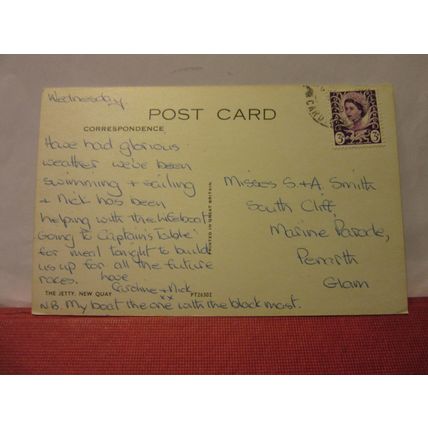 Wednesday
POST CARD
CORRESPONDENCE
Have had glorious
weather we've been
swimming + sailing
+ Nick has been
helping with the lifeboat
Going to 'Captain's Table'
for meal tonight to build
us up for all the future
races. love
Caroline + Nick
xx
THE JETTY, NEW QUAY
PT26302
N.B. My boat the one with the black mast.
PRINTED IN GREAT BRITAIN
Misses S. + A. Smith
South Cliff,
Marine Parade,
Penarth
Glam
3D
3D
CARD